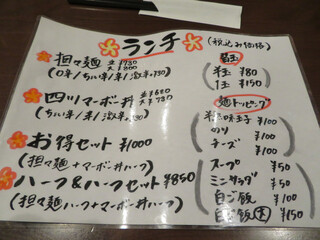 ランチ
(税込み価格)
担々麺 並¥730 大¥800
(0辛/ちょい辛/辛/激辛+¥30)
四ツマーボー丼 並¥680 大¥730
(ちょい辛/辛/激辛+¥30)
お得セット ¥1000
(担々麺+マーボー丼ハーフ)
ハーフ&ハーフセット ¥850
(担々麺ハーフ+マーボー丼ハーフ)
替玉
半玉 ¥80
1玉 ¥150
麺トッピング
味玉子 ¥100
のり ¥100
チーズ ¥100
スープ ¥50
ミニサラダ ¥50
白ご飯 ¥100
白ご飯大 ¥150